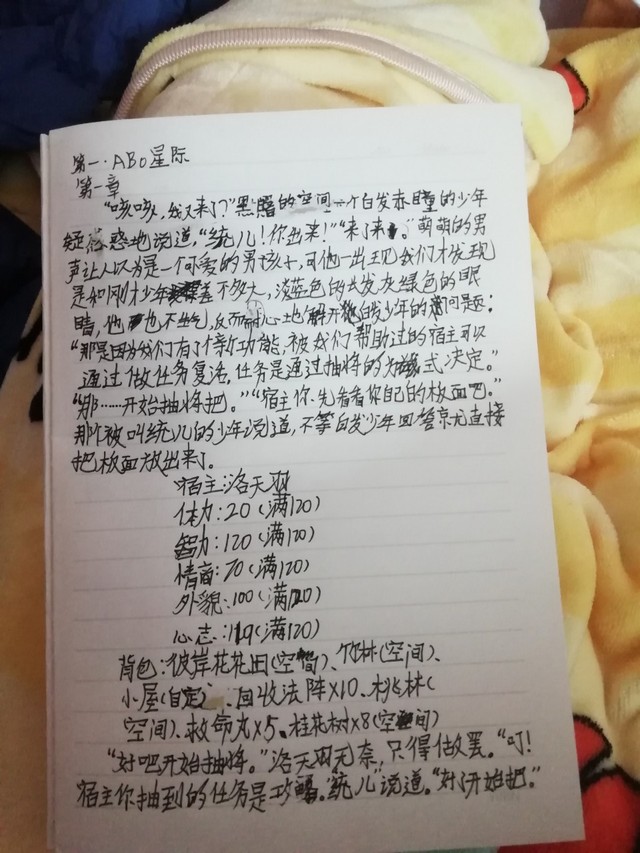 第一.ABO星际
第一章
“咳咳,我又来了?”黑暗的空间一个白发赤瞳的少年
疑惑地说道,“统儿!你出来!”“来了来。”萌萌的男
声让人以为是一个可爱的男孩子,可他一出现我们才发现
是和刚才少年差不多大,淡蓝色的长发灰绿色的眼
睛,他也不生气,反而耐心地解开白发少年的问题:
“那是因为我们有了个新功能,被我们帮助过的宿主可以
通过做任务复活,任务是通过抽将的方式决定。”
“那……开始抽将把。”“宿主你先看看你自己的板面吧。”
那个被叫统儿的少年说道,不等白发少年回答就直接
把板面放出来了。
宿主:洛天羽
体力:20(满120)
智力:120(满120)
情商:70(满120)
外貌:100(满120)
心志:119(满120)
背包:彼岸花花田(空间)、竹林(空间)、
小屋(自定)、回收法阵×10、桃林(
空间)、救命丸×5、桂花树×8(空间)
“好吧开始抽将。”洛天羽无奈,只得做罢。“叮!
宿主你抽到的任务是攻略。”统儿”说道。“好了开始把。”